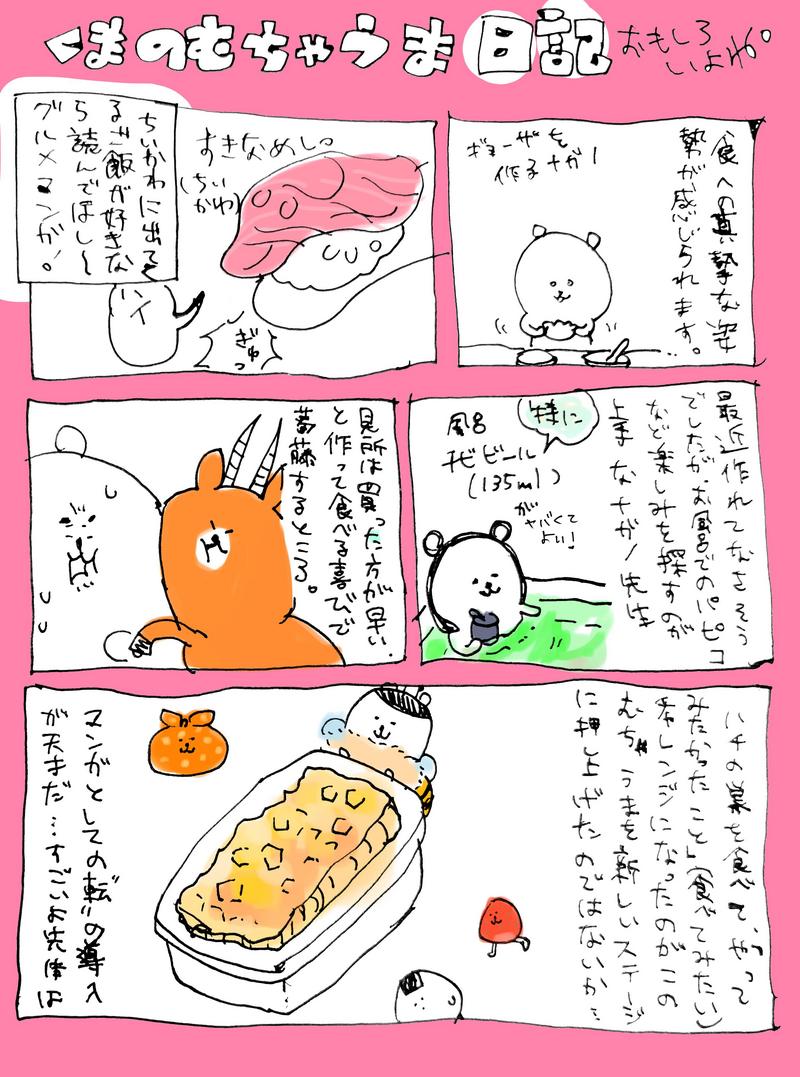 くまのむちゃうま日記
おもしろ
いよね。
食への真摯な姿
勢が感じられます。
ギョーザを
作るナガノ
すきなめしっ
(ちい
かわ)
ちいかわに出てく
るご飯が好きな
ら読んでほしい
グルメマンガ!
ハイ
ぎゅっ
最近作れてなさそう
でしたが、お風呂でのパピコ
など楽しみを探すのが
上手なナガノ先生
特に
風呂
チビビール
(135ml)
が
ヤバくて
よい!
見所は買った方が早い
と作って食べる喜びで
葛藤するところ。
ハチの巣を食べて、"やって
みたかったこと"(食べてみたい)
チャレンジになったのがこの
むちゃうまを新しいステージ
に押し上げたのではないか…
マンガとしての"転"の導入
が天才だ…すごいお先体は